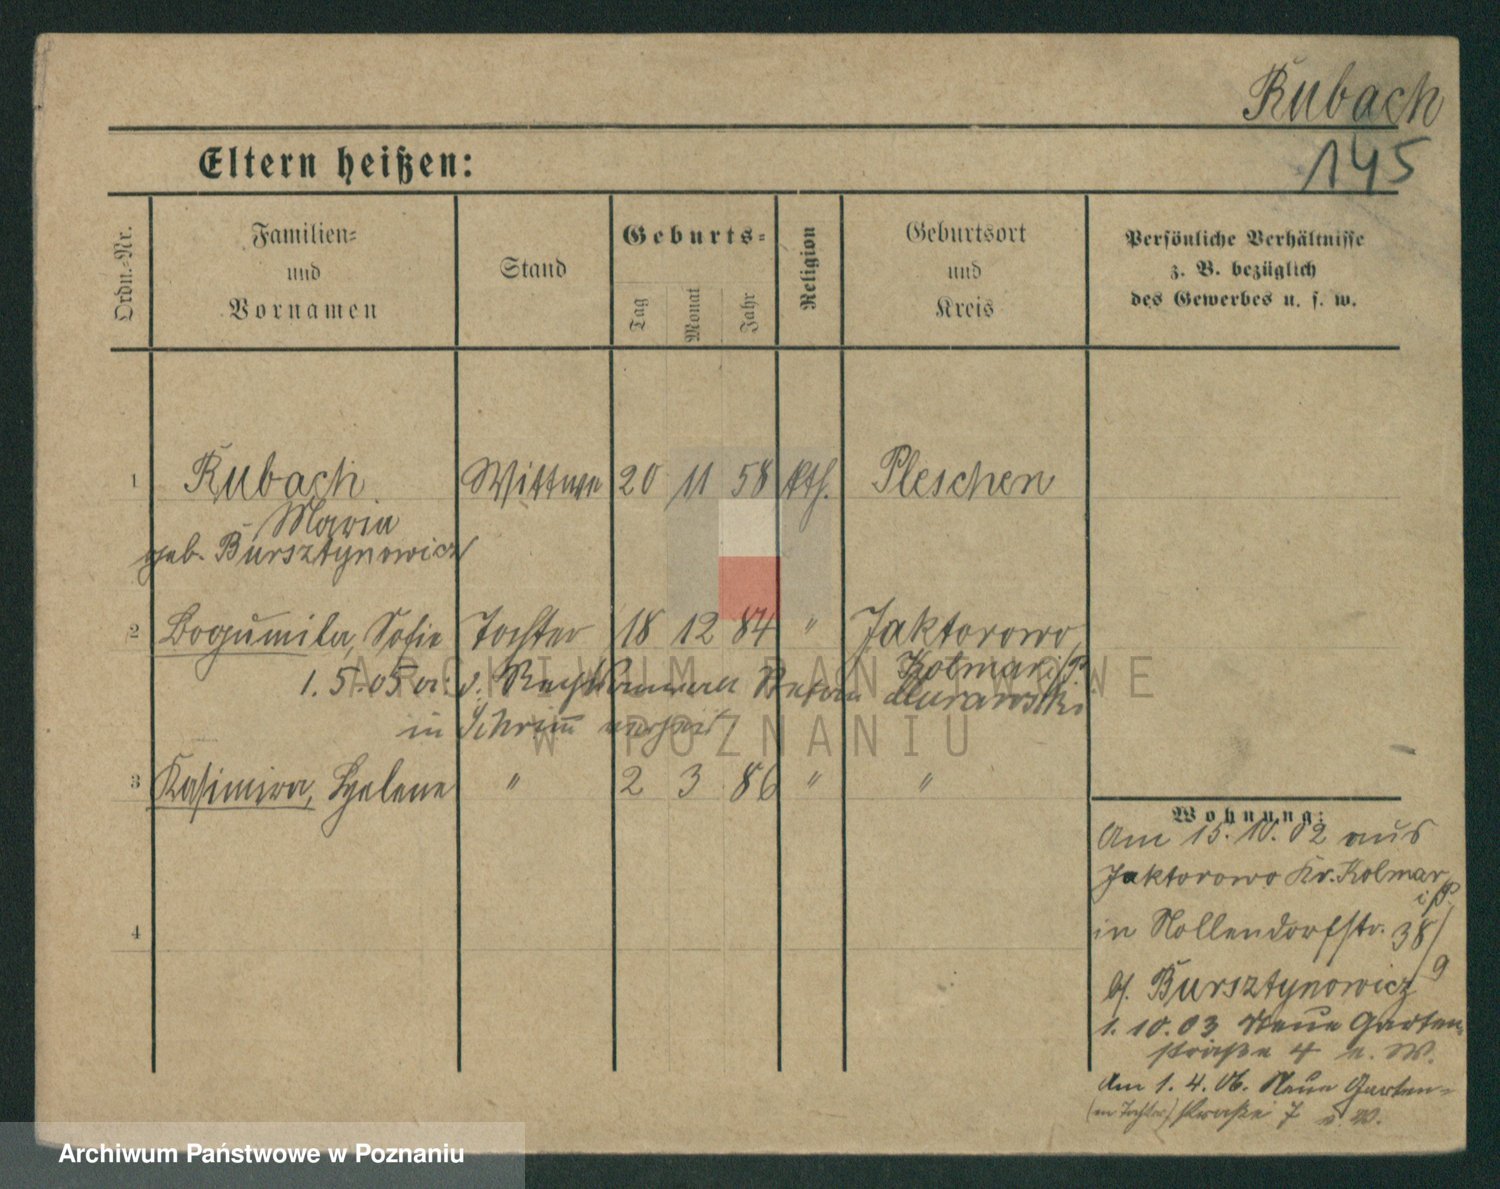 Rubach
145
Eltern heißen:
Ordn.-Nr.
Familien- und Vornamen
Stand
Geburts-
Tag
Monat
Jahr
Religion
Geburtsort und Kreis
Persönliche Verhältnisse z. B. bezüglich des Gewerbes u. s. w.
1 Rubach Wittwe 20 11 58 kth. Pleschen
Maria
geb. Bursztynowicz
2 Bogumila, Sofie Tochter 18 12 84 " Jaktorowo
Kolmar i/P.
1. 5. 05 a. d. Rechtsanwalt Stefan Murawski
in Schrimm verheir.
3 Kasimira, Helene " 2 3 86 " "
4
Wohnung:
Am 15. 10. 02 aus
Jaktorowo Kr. Kolmar
i/P.
in Nollendorfstr. 38/
9
bf. Bursztynowicz
1. 10. 03 Neue Garten-
straße 4 e. W.
Am 1. 4. 06. Neue Garten-
(m Tochter) straße 7 e. W.
ARCHIWUM PAŃSTWOWE
W POZNANIU
Archiwum Państwowe w Poznaniu